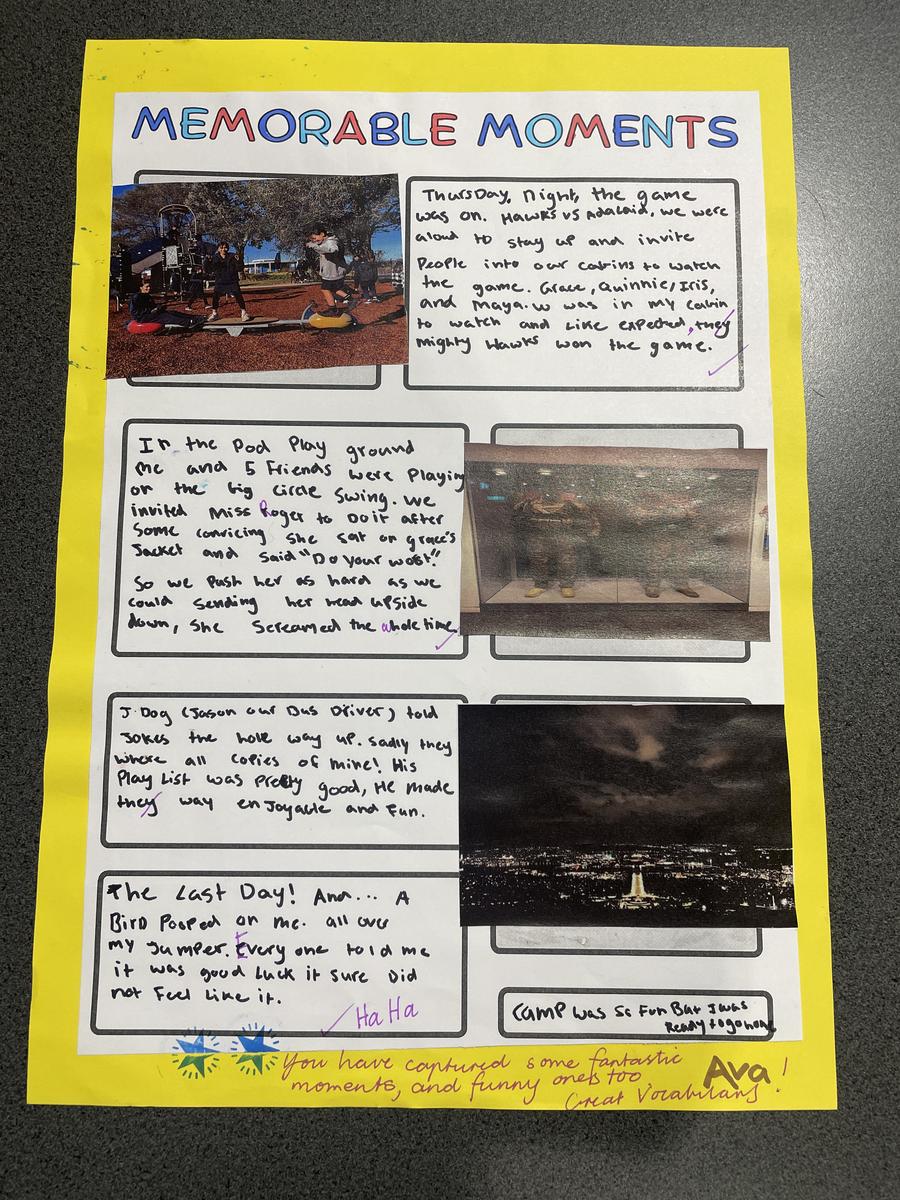 MEMORABLE MOMENTS
ThursDay, Night, the game
was on. Hawks vs Adalaid, we were
aloud to stay up and invite
People into our cabins to watch
the game. Grace, Quinnie, Iris,
and Maya.W was in my cabin
to watch and Like expected, they
mighty Hawks won the game.
In the Pod Play ground
me and 5 Friends were Playing
on the big circle Swing. We
invited Miss Roger to Do it after
Some convicing She Sat on grace's
Jacket and Said "Do your wost!"
So we Push her as hard as we
could Sending her head upside
down, She Screamed the whole time.
J-Dog (Jason our Bus Driver) told
Jokes the hole way up. Sadly they
where all copies of mine! His
Play List was Pretty good, He made
they way enJoyable and Fun.
The Last Day! And... A
Bird Pooped on me. all over
my Jumper. Every one told me
it was good Luck it sure Did
not Feel Like it.
Ha Ha
Camp was So Fun But I was
Ready to go home
You have captured some fantastic
moments, and funny ones too
Great Vocabulary!
Ava!